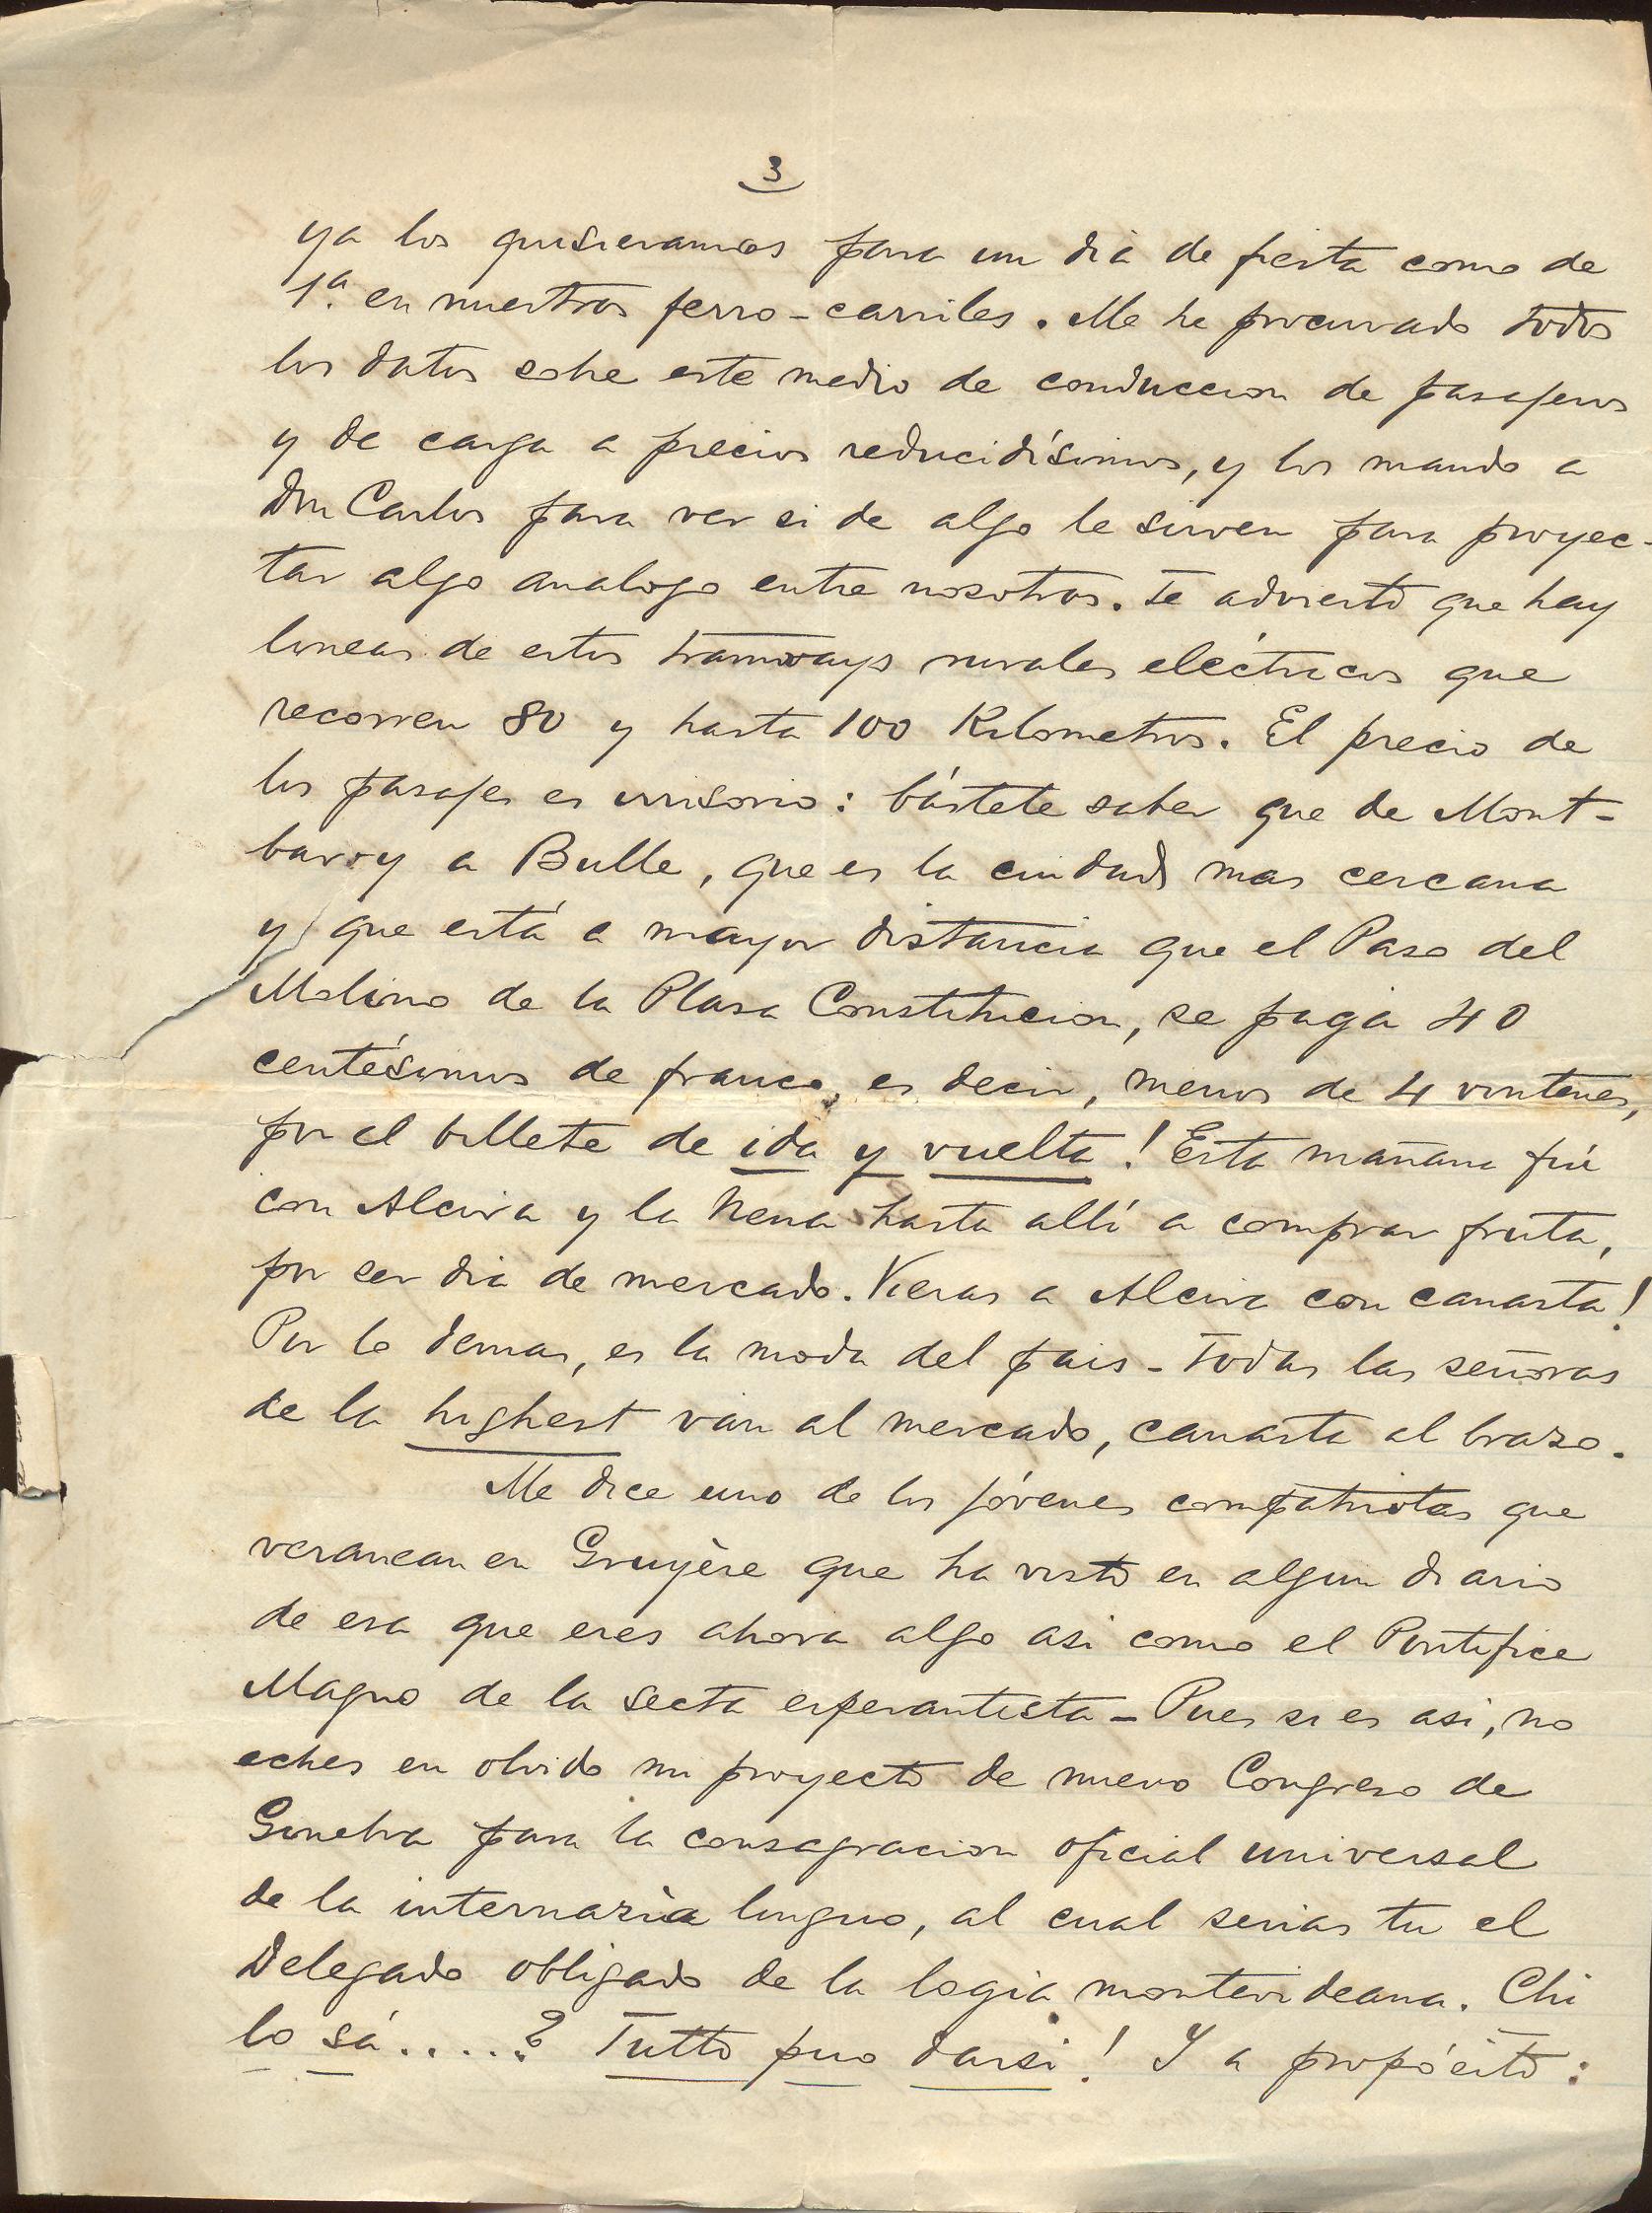 3
ya los quisieramos para un dia de fiesta como de
1.ª en nuestros ferro-carriles. Me he procurado todos
los datos sobre este medio de conduccion de pasajeros
y de carga a precios reducidísimos, y los mando a
Don Carlos para ver si de algo le sirven para proyec-
tar algo analogo entre nosotros. Te advierto que hay
lineas de estos tramways rurales eléctricos que
recorren 80 y hasta 100 Kilometros. El precio de
los pasajes es irrisorio: bástete saber que de Mont-
barry a Bulle, que es la ciudad mas cercana
y que está a mayor distancia que el Paso del
Molino de la Plaza Constitucion, se paga 40
centésimos de franco, es decir, menos de 4 vintenes,
por el billete de ida y vuelta! Esta mañana fui
con Alcira y la Nena hasta allí a comprar fruta,
por ser dia de mercado. Vieras a Alcira con canasta!
Por lo demas, es la moda del pais - Todas las señoras
de la highest van al mercado, canasta al brazo.
Me dice uno de los jóvenes compatriotas que
veranean en Gruyère que ha visto en algun diario
de esa que eres ahora algo asi como el Pontifice
Magno de la secta esperantista - Pues si es asi, no
eches en olvido mi proyecto de nuevo Congreso de
Ginebra para la consagracion oficial universal
de la internazia linguo, al cual serias tu el
Delegado obligado de la logia montevideana. Chi
lo sá.....? Tutto puo darsi! Y a propósito: